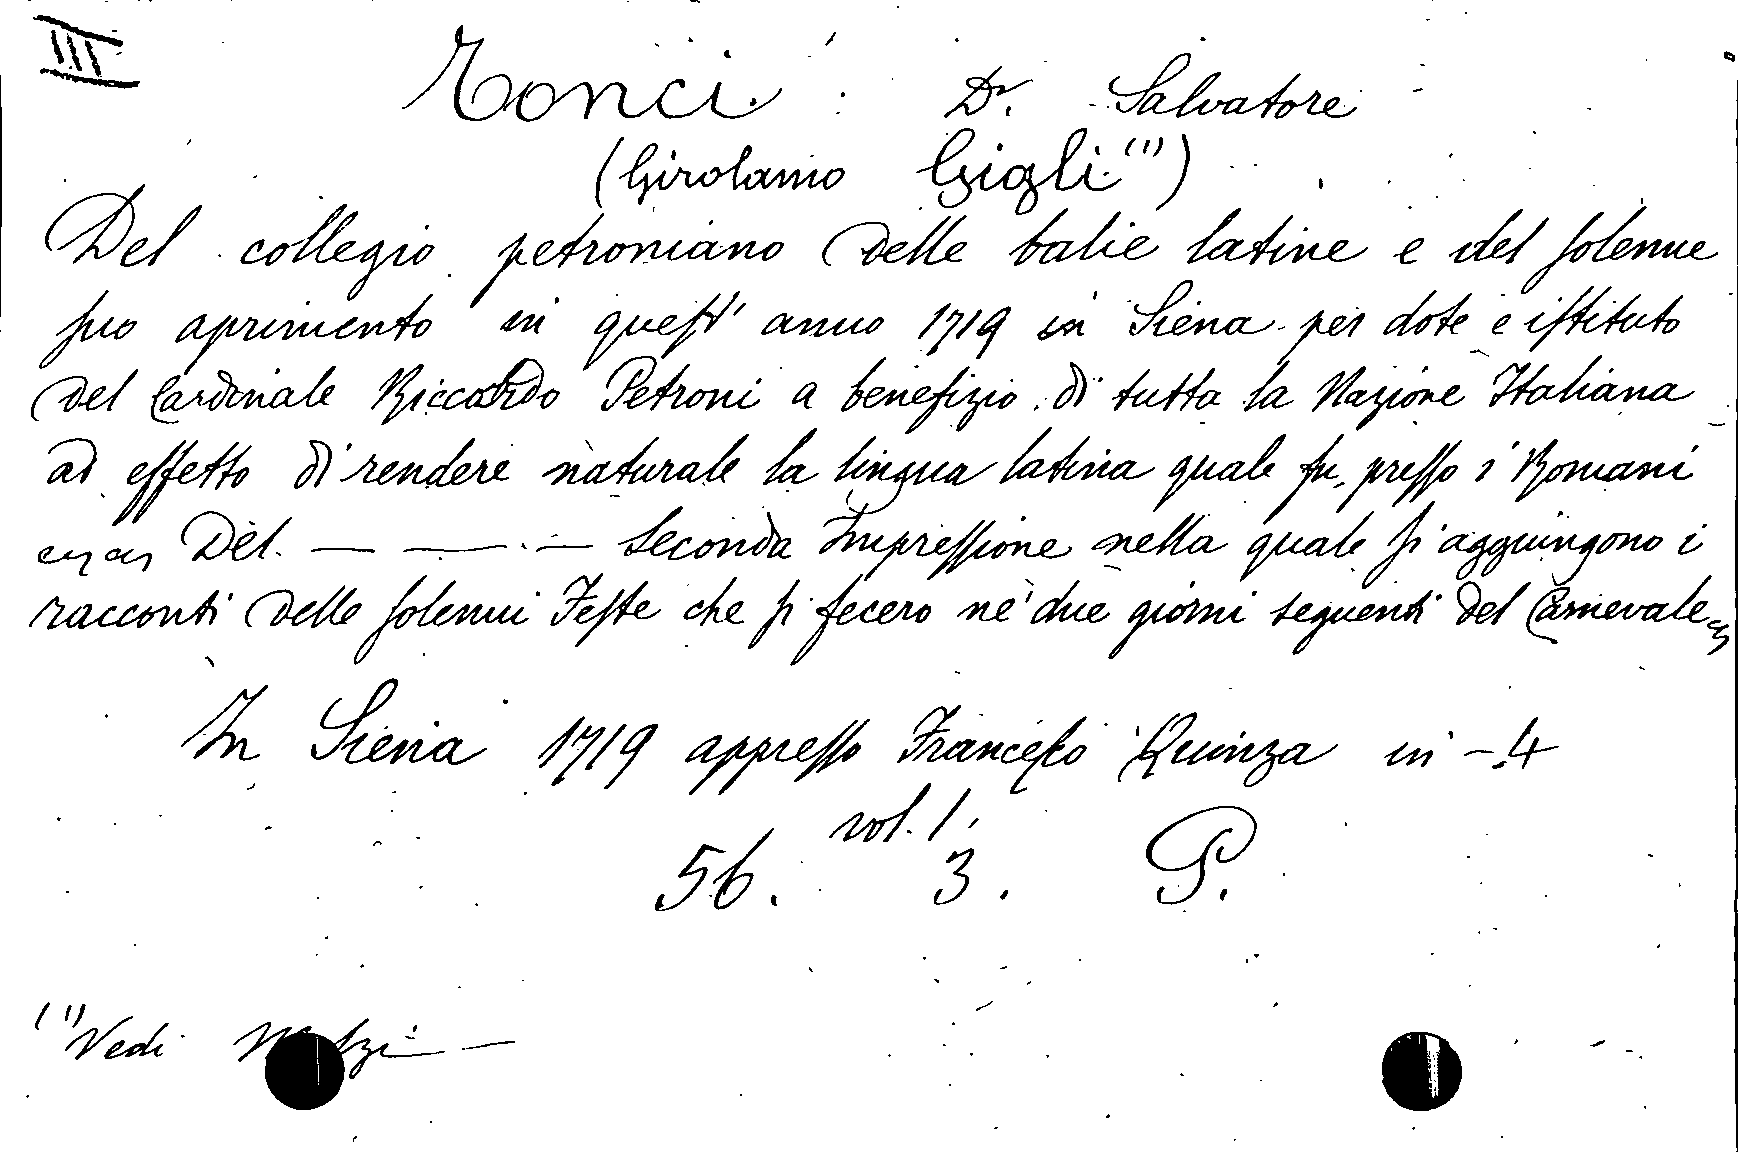 III
Tonci Dr. Salvatore
(Girolamo Gigli (1))
Del collegio petroniano delle balie latine e del solenne
suo aprimento in quest' anno 1719 in Siena per dote e istituto
del Cardinale Riccardo Petroni a benefizio di tutta la Nazione Italiana
ad effetto di rendere naturale la lingua latina quale fu presso i Romani
Del. — — — Seconda Impressione nella quale si aggiungono i
racconti delle solenni Feste che si fecero ne' due giorni seguenti del Carnevale
In Siena 1719 appresso Francesco Quinza in-4
vol. 1.
56. 3. P.
(1) Vedi